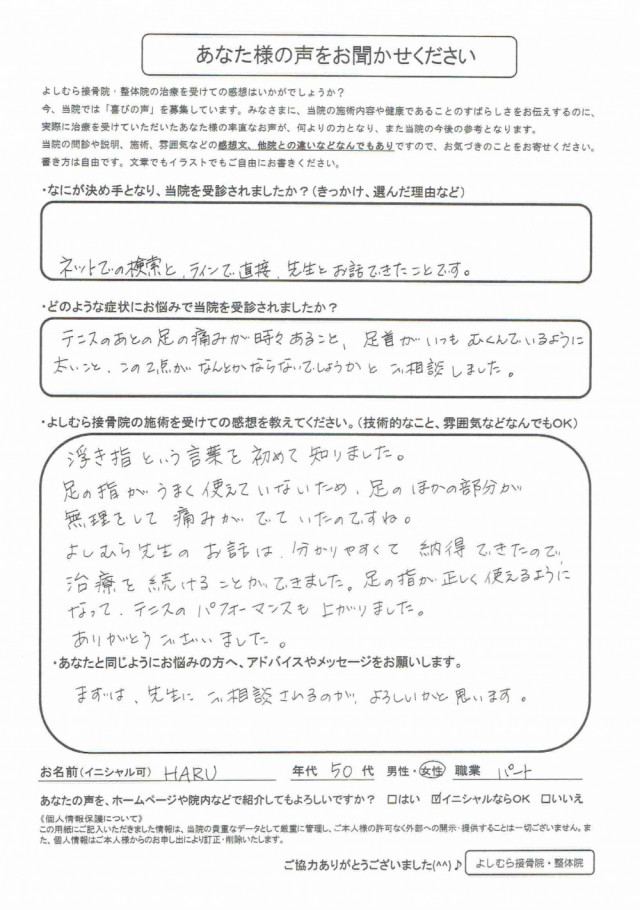 あなた様の声をお聞かせください
よしむら接骨院・整体院の治療を受けての感想はいかがでしょうか？
今、当院では「喜びの声」を募集しています。みなさまに、当院の施術内容や健康であることのすばらしさをお伝えするのに、
実際に治療を受けていただいたあなた様の率直なお声が、何よりの力となり、また当院の今後の参考となります。
当院の問診や説明、施術、雰囲気などの感想文、他院との違いなどなんでもありですので、お気づきのことをお寄せください。
書き方は自由です。文章でもイラストでもご自由にお書きください。
・なにが決め手となり、当院を受診されましたか？(きっかけ、選んだ理由など)
ネットでの検索と、ラインで直接、先生とお話できたことです。
・どのような症状にお悩みで当院を受診されましたか？
テニスのあとの足の痛みが時々あること、足首がいつもむくんでいるように
太いこと、この2点がなんとかならないでしょうかと ご相談しました。
・よしむら接骨院の施術を受けての感想を教えてください。(技術的なこと、雰囲気などなんでもOK)
浮き指という言葉を初めて知りました。
足の指がうまく使えていないため、足のほかの部分が
無理をして痛みがでていたのですね。
よしむら先生のお話は、分かりやすくて納得できたので
治療を続けることができました。足の指が正しく使えるように
なって、テニスのパフォーマンスも上がりました。
ありがとうございました。
・あなたと同じようにお悩みの方へ、アドバイスやメッセージをお願いします。
まずは、先生にご相談されるのが、よろしいかと思います。
お名前(イニシャル可) HARU 年代 50代 男性・女性 職業 パート
あなたの声を、ホームページや院内などで紹介してもよろしいですか？ □はい ☑イニシャルならOK □いいえ
《個人情報保護について》
この用紙にご記入いただきました情報は、当院の貴重なデータとして厳重に管理し、ご本人様の許可なく外部への開示・提供することは一切ございません。ま
た、個人情報はご本人様からのお申し出により訂正・削除いたします。
ご協力ありがとうございました(^^)♪ よしむら接骨院・整体院